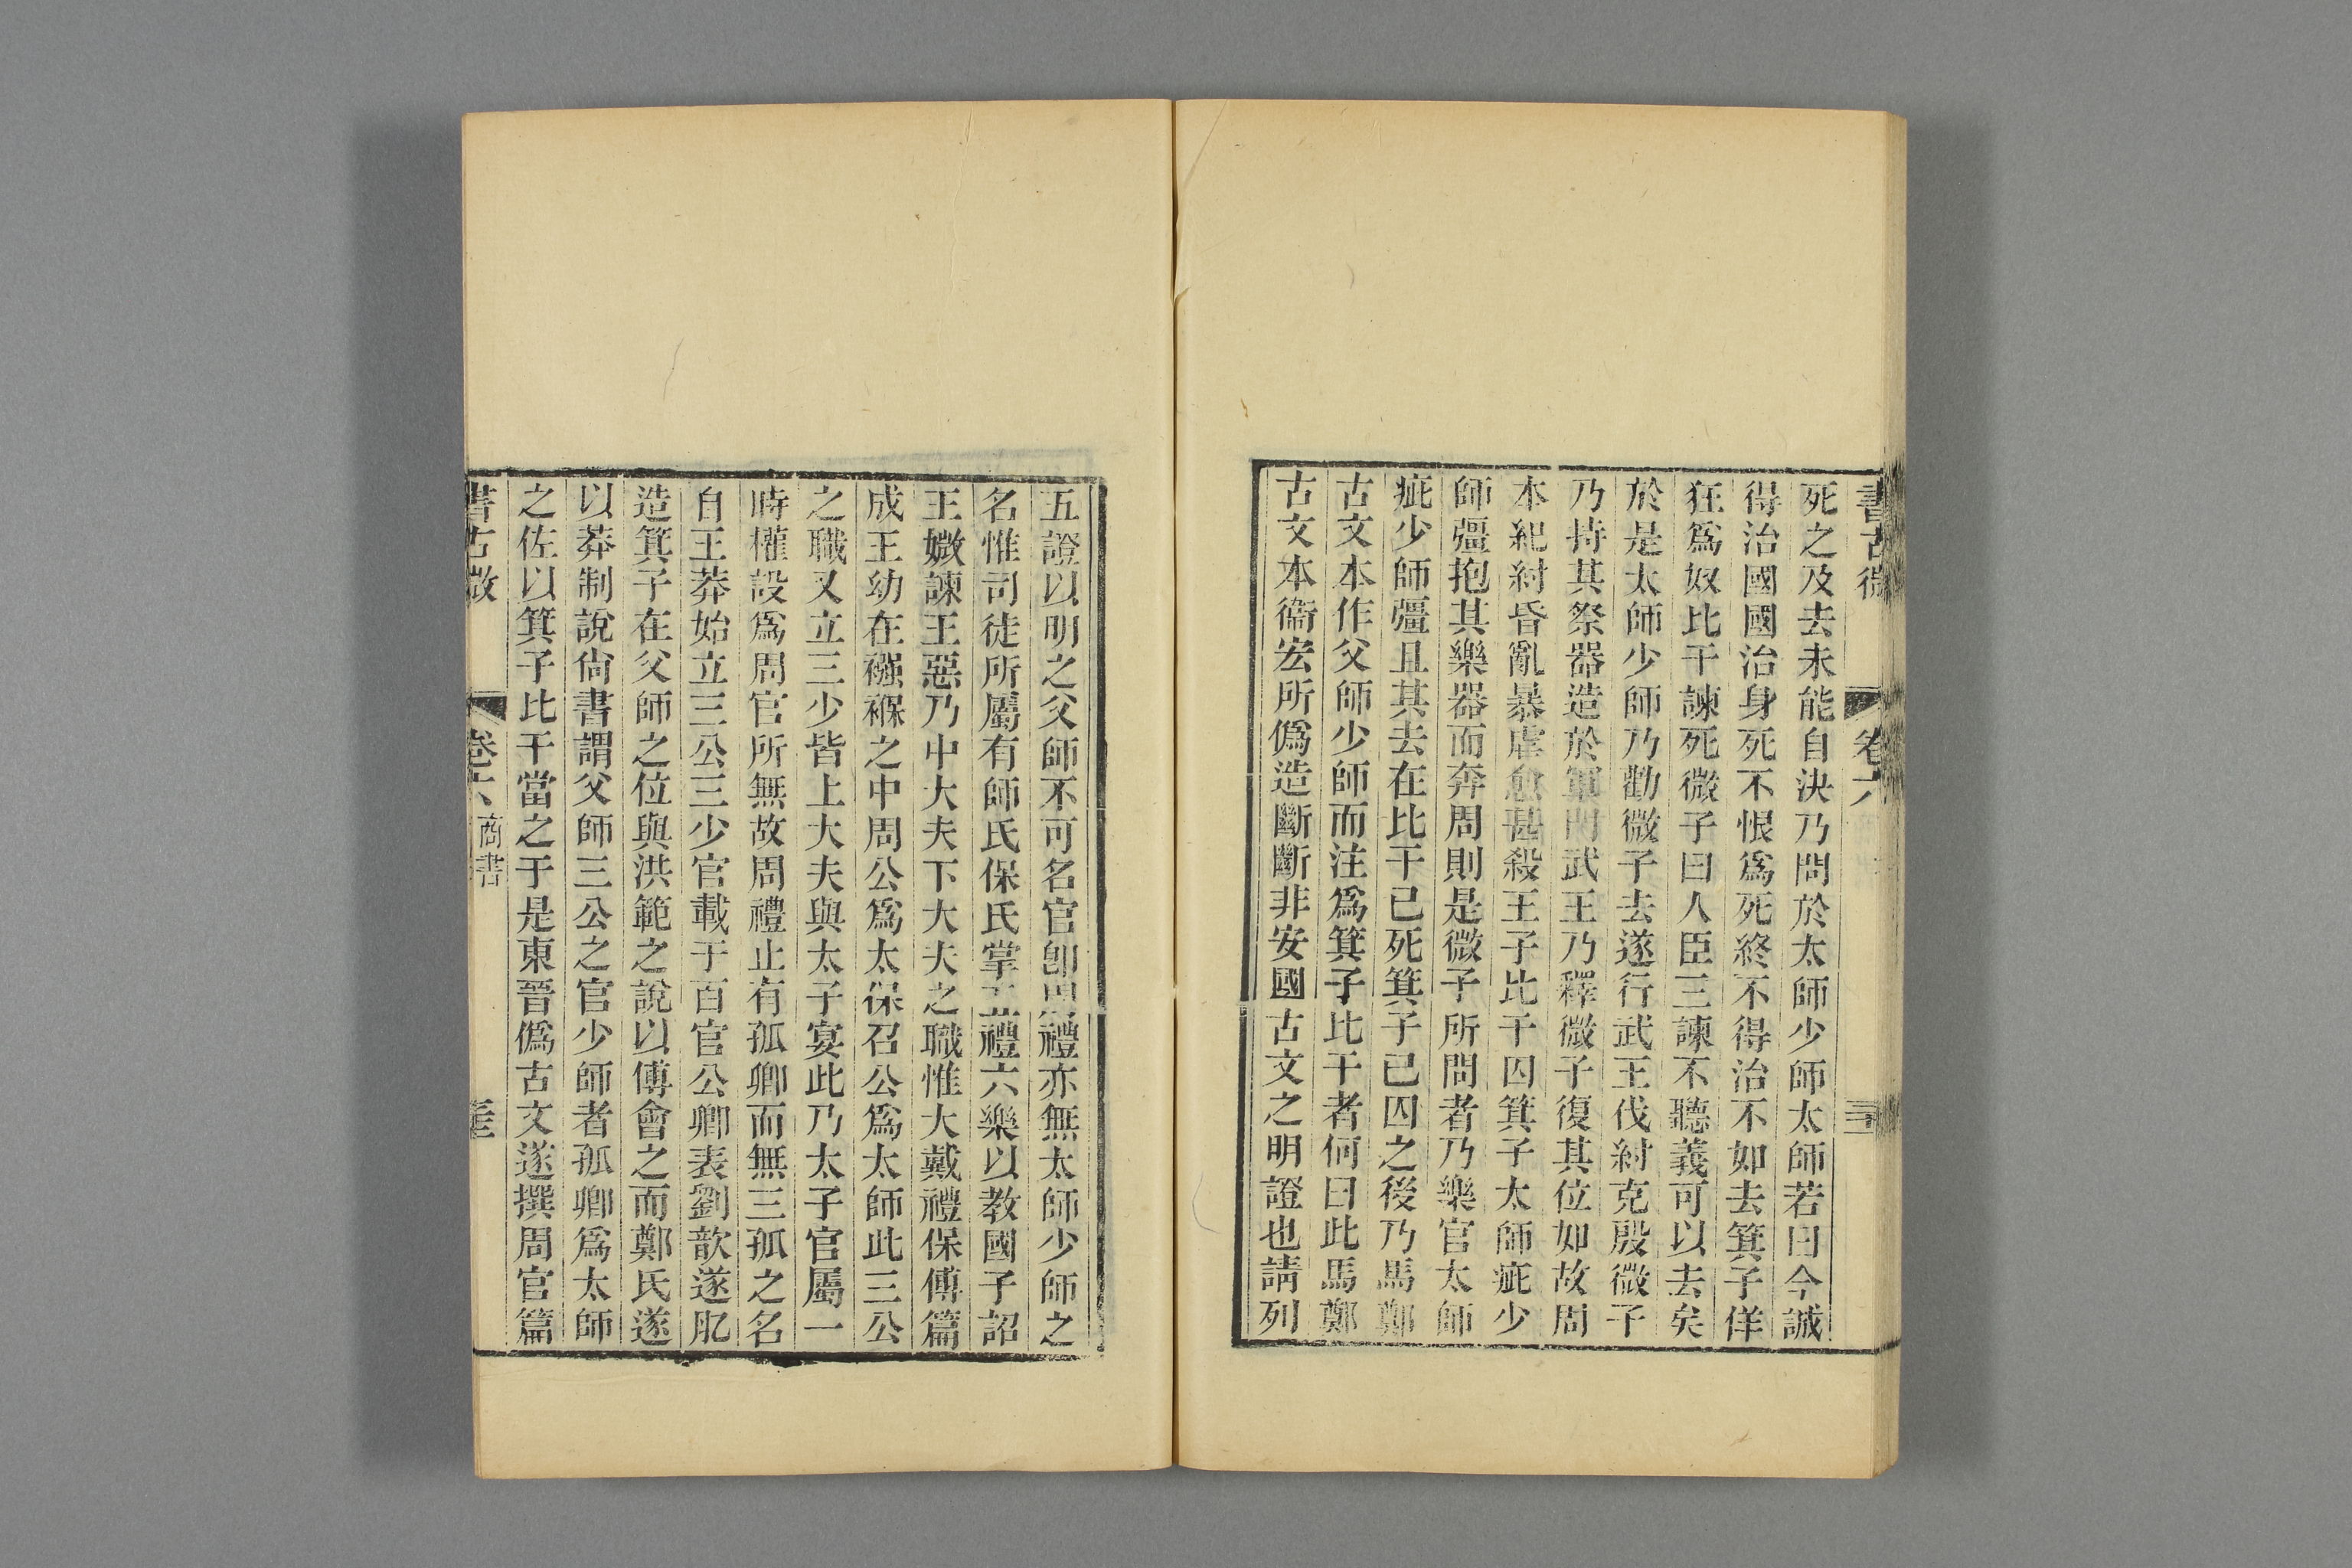 書古微
卷六
死之及去未能自決乃問於太師少師太師若曰今誠
得治國國治身死不恨爲死終不得治不如去箕子佯
狂爲奴比干諫死微子曰人臣三諫不聽義可以去矣
於是太師少師乃勸微子去遂行武王伐紂克殷微子
乃持其祭器造於軍門武王乃釋微子復其位如故周
本紀紂昏亂暴虐愈甚殺王子比干囚箕子太師疵少
師彊抱其樂器而奔周則是微子所問者乃樂官太師
疵少師彊且其去在比干已死箕子已囚之後乃馬鄭
古文本作父師少師而注爲箕子比干者何曰此馬鄭
古文本衞宏所僞造斷斷非安國古文之明證也請列
五證以明之父師不可名官卽周禮亦無太師少師之
名惟司徒所屬有師氏保氏掌五禮六樂以教國子詔
王媺諫王惡乃中大夫下大夫之職惟大戴禮保傅篇
成王幼在襁褓之中周公爲太保召公爲太師此三公
之職又立三少皆上大夫與太子宴此乃太子官屬一
時權設爲周官所無故周禮止有孤卿而無三孤之名
自王莽始立三公三少官載于百官公卿表劉歆遂肊
造箕子在父師之位與洪範之說以傅會之而鄭氏遂
以莽制說尙書謂父師三公之官少師者孤卿爲太師
之佐以箕子比干當之于是東晉僞古文遂撰周官篇
書古微
卷六
商書